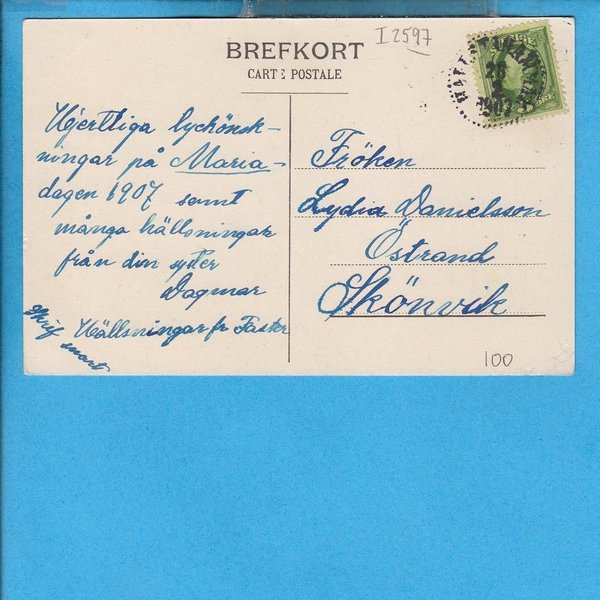 I 2597
BREFKORT
CARTE POSTALE
Hjertliga lyckönsk-
ningar på Maria-
dagen 1907 samt
många hällsningar
från din syster
Dagmar
Hällsningar fr Faster
Skrif
snart
Fröken
Lydia Danielsson
Östrand
Skönvik
100